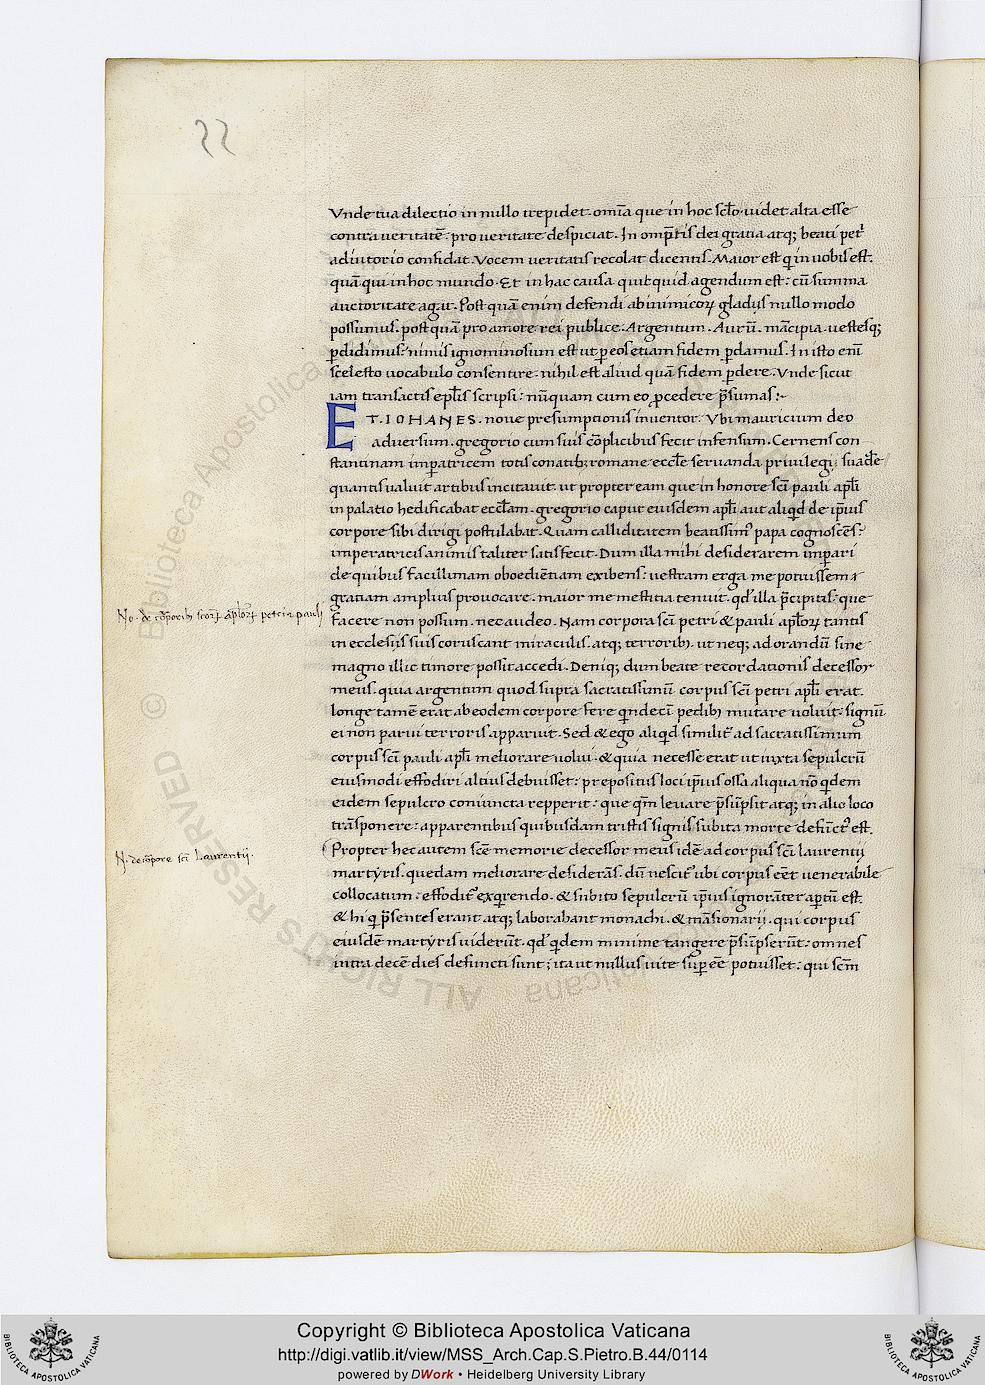 Vnde tua dilectio in nullo trepidet. omīa que in hoc sclō uidet alta esse
contra ueritatē: pro ueritate despiciat. In omp̄tis dei gratia atq; beati pet̄
adiutorio confidat. Vocem ueritatis recolat dicentis. Maior est q̄ in uobis est.
quā qui in hoc mundo. Et in hac causa quicquid agendum est: cū summa
auctoritate agat. Post quā enim defendi ab inimicoꝝ gladijs nullo modo
possumus. post quā pro amore rei publice. Argentum. Aurū. mācipia. uestesq;
ꝑdidimus: nimis ignominosum est ut ꝑ eos etiam fidem ꝑdamus. In isto enī
scelesto uocabulo consentire. nihil est aliud quā fidem ꝑdere. Vnde sicut
iam transactis ep̄lis scripsi: nūquam cum eo ꝓcedere p̄sumas:
ET. IOHANES. noue presumptionis inuentor. Vbi mauricium deo
aduersum. gregorio cum suis cōplicibus fecit infensum. Cernens con
stantinam imꝑatricem totis conatibꝫ romane eccl̄e seruanda priuilegi; suad̄e
quantis ualuit artibus incitauit. ut propter eam que in honore sc̄i pauli apl̄i
in palatio hedificabat eccl̄am. gregorio caput eiusdem apl̄i aut aliqd de ip̄ius
corpore sibi dirigi postulabat. Quam calliditatem beatissim' papa cognoscēs:
imperatricis animis taliter satisfecit. Dum illa mihi desiderarem imꝑari
de quibus facillimam oboediētiam exibens: uestram erga me potuissem
gratiam amplius prouocare. maior me mestitia tenuit. qd' illa p̄cipitis: que
facere non possum. nec audeo. Nam corpora sc̄i petri & pauli apl̄oꝝ tantis
in ecclesijs suis coruscant miraculis. atq; terroribꝫ. ut neq; ad orandū sine
magno illic timore possit accedi. Deniq; dum beate recordationis decessor
meus. quia argentum quod supra sacratissimū corpus sc̄i petri apl̄i erat.
longe tamē erat ab eodem corpore fere q̄ndecī pedibꝫ mutare uoluit: signū
ei non parui terroris apparuit. Sed & ego aliqd similit̄ ad sacratissimum
corpus sc̄i pauli apl̄i meliorare uolui. & quia necesse erat ut iuxta sepulcrū
eiusmodi effodiri altius debuisset: prepositus loci ip̄ius ossa aliqua nō q̄dem
eidem sepulcro coniuncta repperit: que qm̄ leuare p̄sūpsit atq; in alio loco
trāsponere: apparentibus quibusdam tristis signis subita morte defūct' est.
Propter hec autem sc̄e memorie decessor meus idē ad corpus sc̄i laurentij
martyris. quedam meliorare desiderās. dū nescit' ubi corpus eēt uenerabile
collocatum: effodit' exq̄rendo. & subito sepulcrū ip̄ius ignorāter aꝑtū est.
& hi q̄ p̄sentes erant atq; laborabant monachi. & māsionarij. qui corpus
eiusdē martyris uiderūt. qd' q̄dem minime tangere p̄sūpserūt: omnes
intra decē dies defuncti sunt; ita ut nullus uite suꝑ eē potuisset: qui scm̄
No. de corporibꝫ scōꝝ aplōꝝ petri & pauli
N. de corpore sc̄i Laurentij.
© Biblioteca Apostolica Vaticana
ALL RIGHTS RESERVED
BIBLIOTECA APOSTOLICA VATICANA
Copyright © Biblioteca Apostolica Vaticana
http://digi.vatlib.it/view/MSS_Arch.Cap.S.Pietro.B.44/0114
powered by DWork • Heidelberg University Library
BIBLIOTECA APOSTOLICA VATICANA